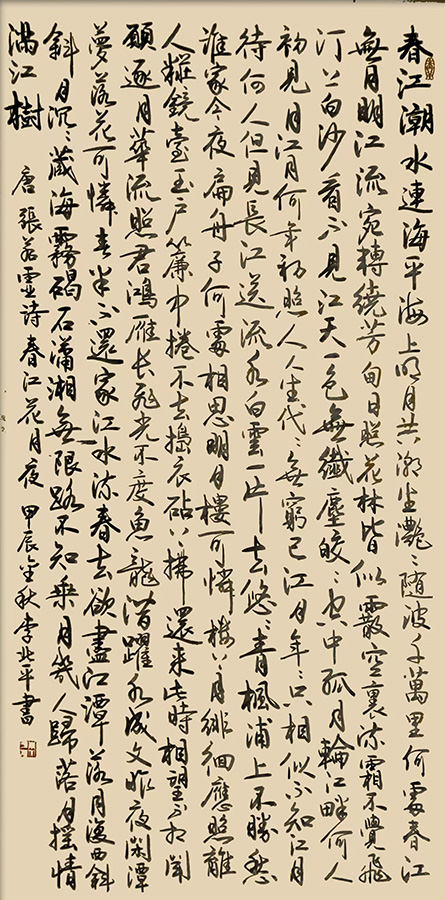 春江潮水連海平海上明月共潮生灧〻随波千萬里何處春江
無月明江流宛轉繞芳甸月照花林皆似霰空裏流霜不覺飛
汀上白沙看不見江天一色無纖塵皎〻空中孤月輪江畔何人
初見月江月何年初照人人生代〻無窮已江月年〻只相似不知江月
待何人但見長江送流水白雲一片去悠〻青楓浦上不勝愁
誰家今夜扁舟子何處相思明月樓可憐樓上月徘徊應照離
人糚鏡臺玉户簾中捲不去搗衣砧上拂還来此時相望不相聞
願逐月華流照君鴻雁長飛光不度魚龍潛躍水成文昨夜閑潭
夢落花可憐春半不還家江水流春去欲盡江潭落月復西斜
斜月沉〻藏海霧碣石瀟湘無限路不知乘月幾人歸落月摇情
滿江樹
唐張若虛詩春江花月夜 甲辰金秋李北平書